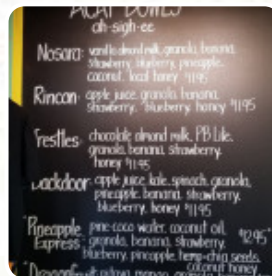 ACAI BOWLS
ah-sigh-ee
Nosara: vanilla almond milk, granola, banana,
strawberry, blueberry, pineapple,
coconut, local honey $11.95
Rincon: apple juice, granola, banana,
strawberry, blueberry, honey $11.95
Trestles: chocolate almond milk, PB Life,
granola, banana, strawberry,
honey $11.95
Backdoor: apple juice, kale, spinach, granola,
pineapple, banana, strawberry,
blueberry, honey $11.95
"Pineapple pine-coco water, coconut oil,
Express" granola, banana, strawberry, $12.95
blueberry, pineapple, hemp+chia seeds,
coconut honey